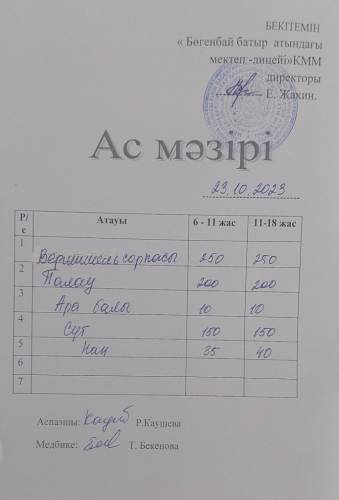 БЕКІТЕМІН
« Бөгенбай батыр атындағы
мектеп -лицейі»КММ
директоры
Е. Жакин.
Ас мәзірі
23.10.2023
Р/с Атауы 6 - 11 жас 11-18 жас
1 Вермишель сорпасы 250 250
2 Палау 200 200
3 Ара балы 10 10
4 Сүт 150 150
5 Нан 35 40
6
7
Аспазшы: Р.Каушева
Медбике: Т. Бекенова